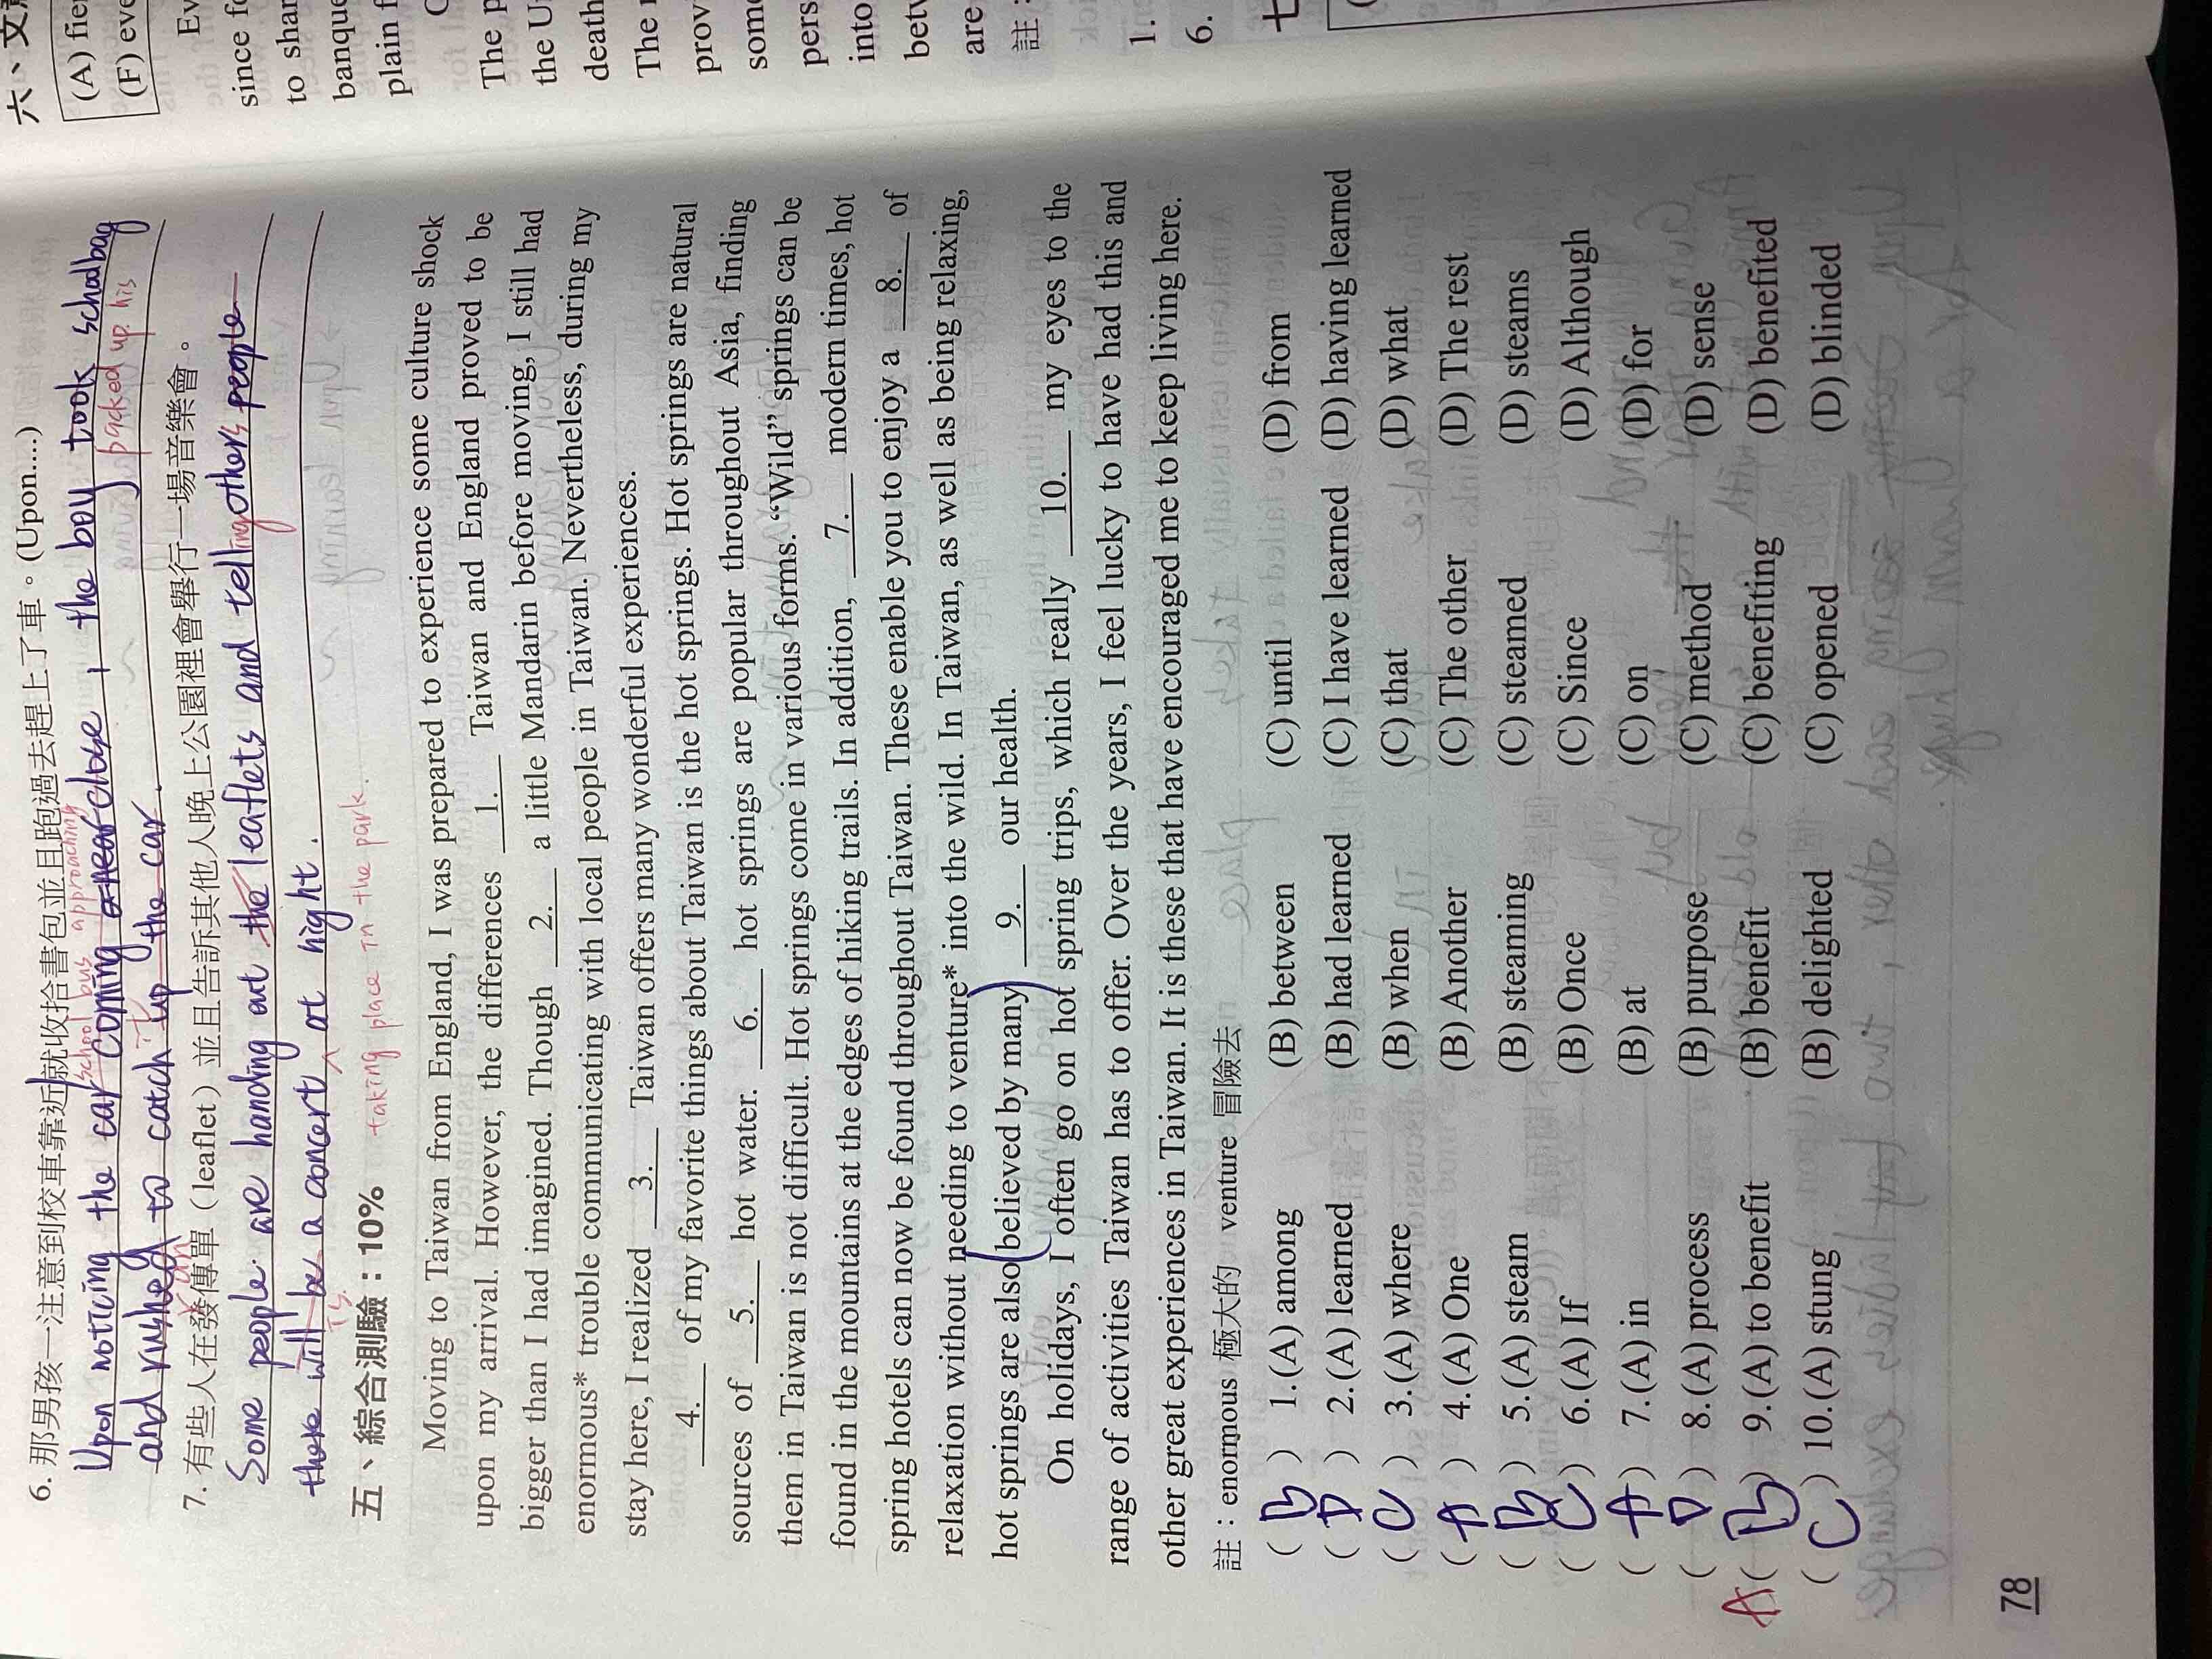 6. 那男孩一注意到校車靠近就收拾書包並且跑過去趕上了車。(Upon....)
school bus approaching
Upon noticing the car coming close, the boy took schoolbag
packed up his
and rushed to catch up the car.
run
it
7. 有些人在發傳單（leaflet）並且告訴其他人晚上公園裡會舉行一場音樂會。
Some people are handing out the leaflets and telling others people
there will be a concert at night.
is
taking place in the park.
五、綜合測驗：10%
Moving to Taiwan from England, I was prepared to experience some culture shock
upon my arrival. However, the differences 1. Taiwan and England proved to be
bigger than I had imagined. Though 2. a little Mandarin before moving, I still had
enormous* trouble communicating with local people in Taiwan. Nevertheless, during my
stay here, I realized 3. Taiwan offers many wonderful experiences.
4. of my favorite things about Taiwan is the hot springs. Hot springs are natural
sources of 5. hot water. 6. hot springs are popular throughout Asia, finding
them in Taiwan is not difficult. Hot springs come in various forms. “Wild” springs can be
found in the mountains at the edges of hiking trails. In addition, 7. modern times, hot
spring hotels can now be found throughout Taiwan. These enable you to enjoy a 8. of
relaxation without needing to venture* into the wild. In Taiwan, as well as being relaxing,
hot springs are also (believed by many) 9. our health.
On holidays, I often go on hot spring trips, which really 10. my eyes to the
range of activities Taiwan has to offer. Over the years, I feel lucky to have had this and
other great experiences in Taiwan. It is these that have encouraged me to keep living here.
註：enormous 極大的 venture 冒險去
( B ) 1.(A) among (B) between (C) until (D) from
( D ) 2.(A) learned (B) had learned (C) I have learned (D) having learned
( C ) 3.(A) where (B) when (C) that (D) what
( A ) 4.(A) One (B) Another (C) The other (D) The rest
( B ) 5.(A) steam (B) steaming (C) steamed (D) steams
( C ) 6.(A) If (B) Once (C) Since (D) Although
( A ) 7.(A) in (B) at (C) on (D) for
( D ) 8.(A) process (B) purpose (C) method (D) sense
A ( B ) 9.(A) to benefit (B) benefit (C) benefiting (D) benefited
( C ) 10.(A) stung (B) delighted (C) opened (D) blinded
78
六、文
(A) fier
(F) eve
Ev
since fo
to shar
banque
plain f
The p
the U
death
The
prov
some
pers
into
betw
are
註：
1.
6.
七